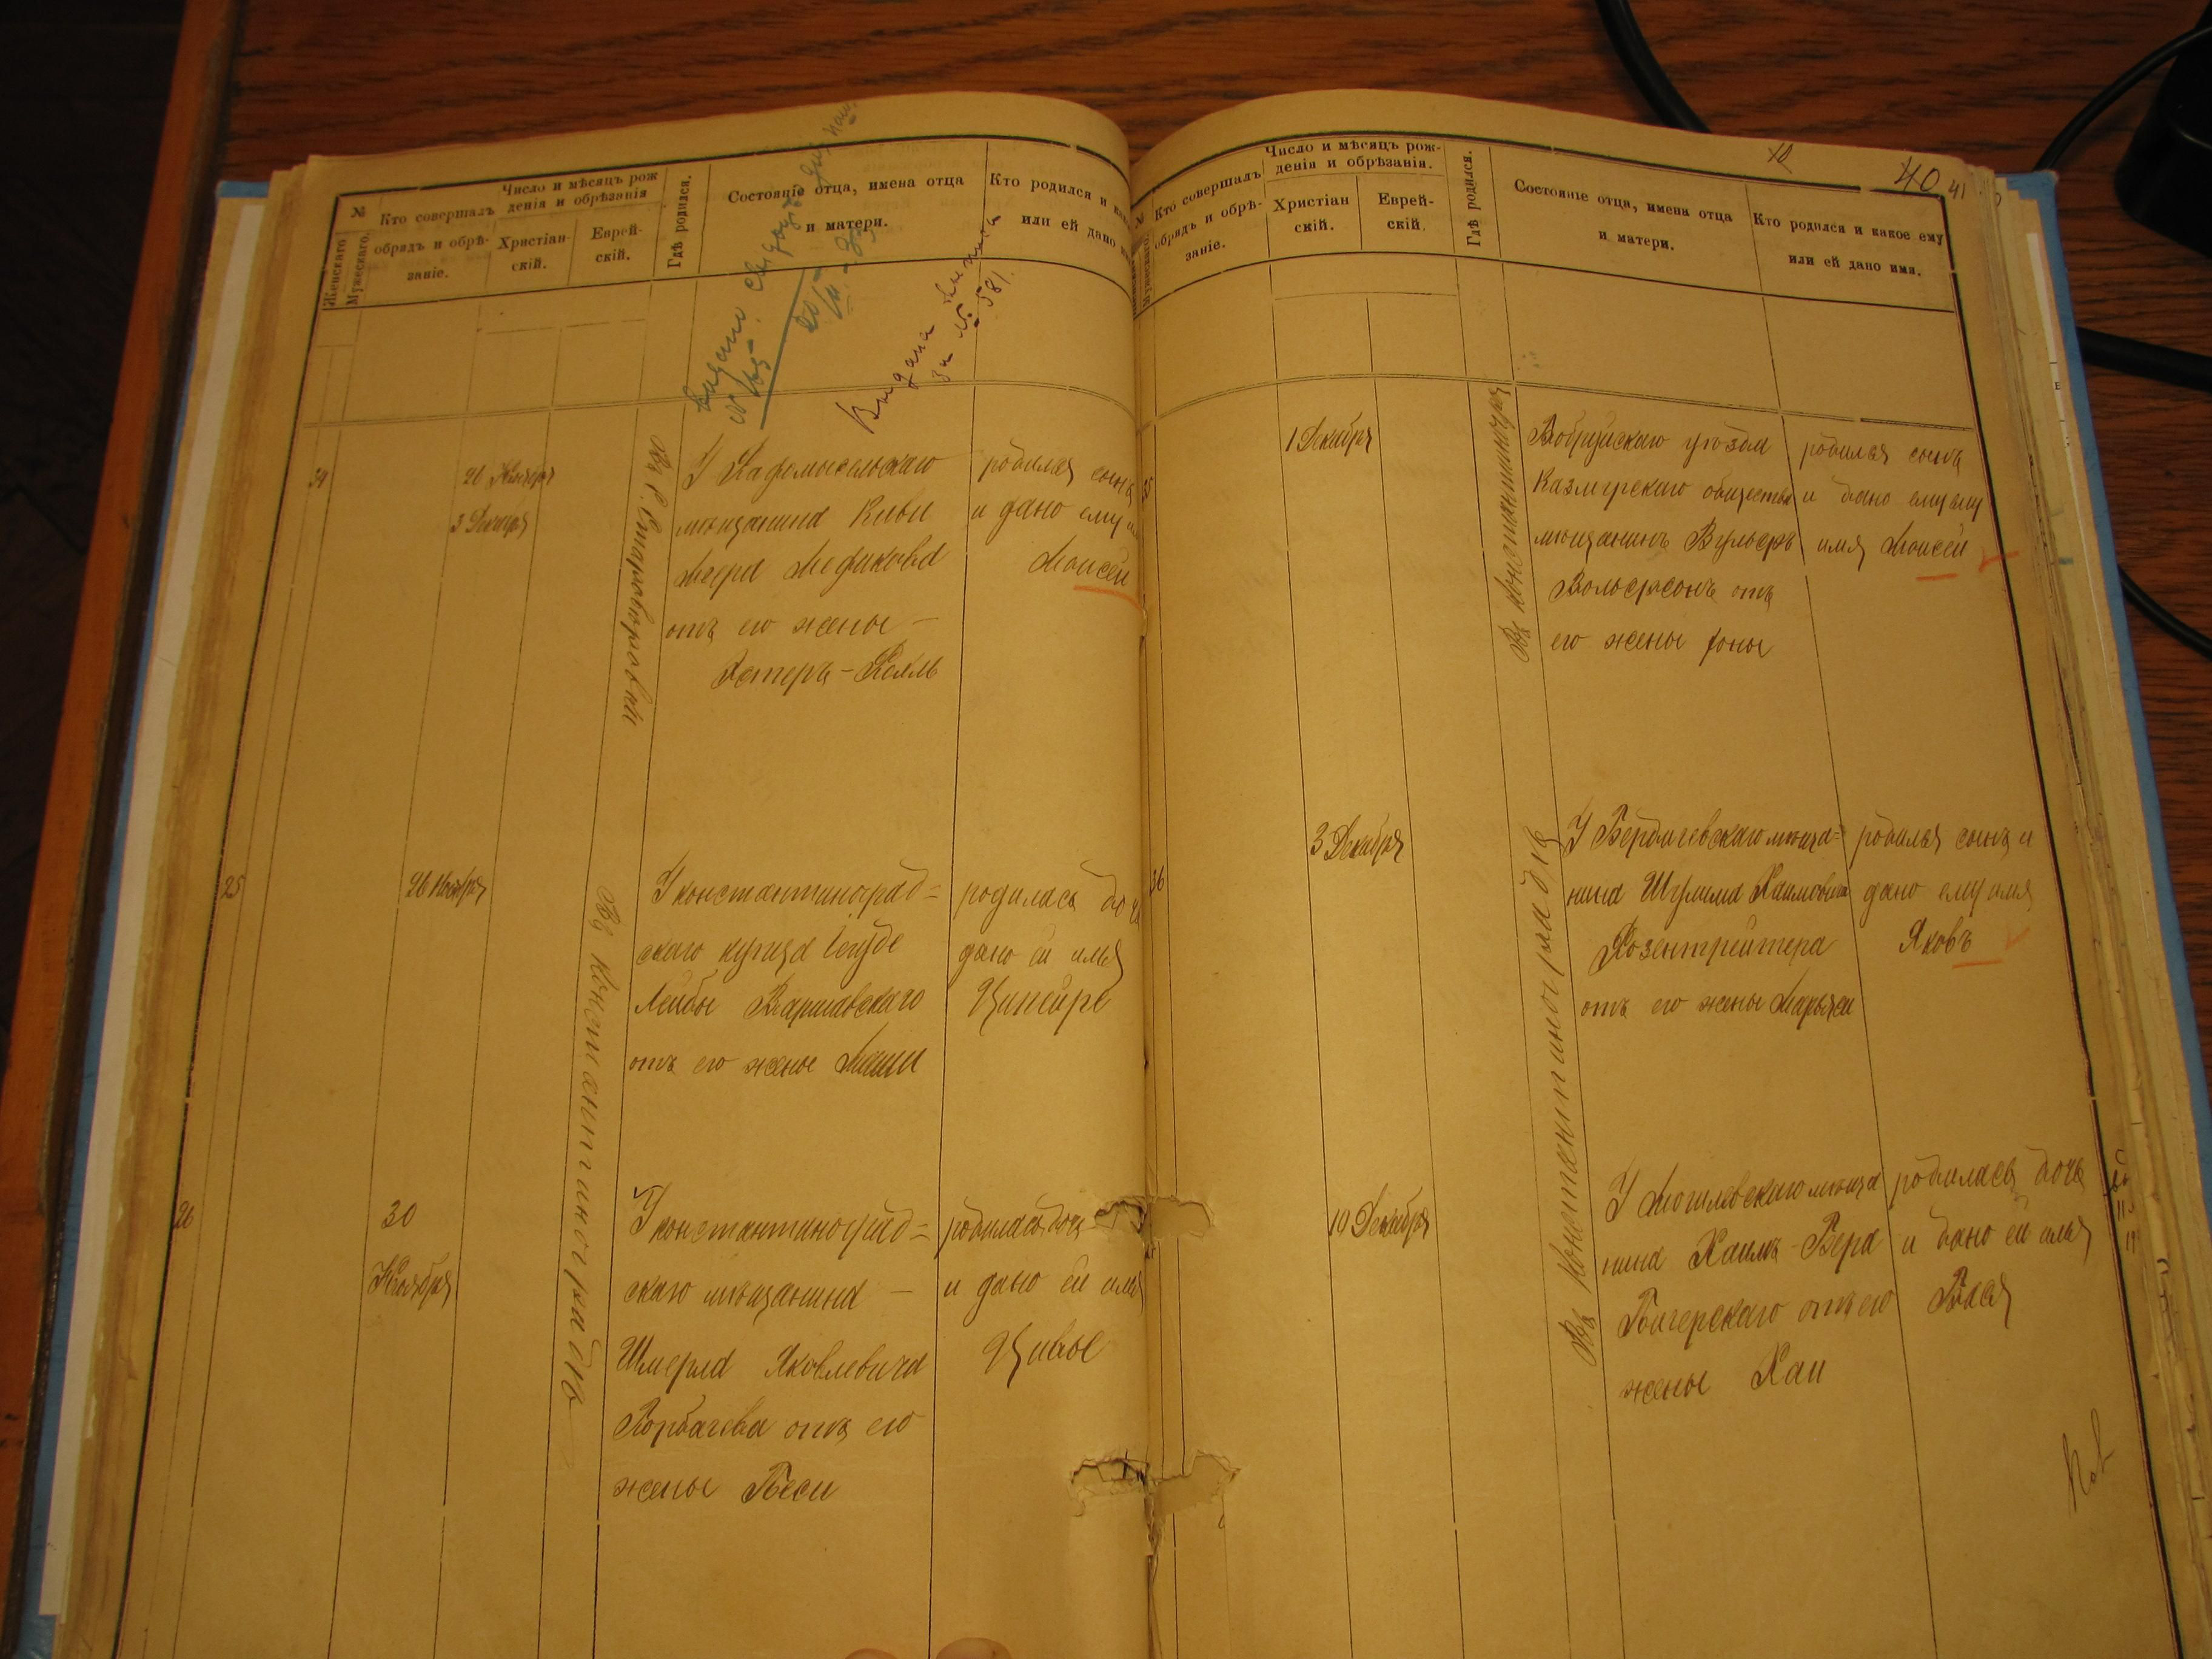 №
Женскаго
Мужескаго.
Кто совершалъ
обрядъ и обрѣ-
заніе.
Число и мѣсяцъ рож
денія и обрѣзанія
Христіан-
скій.
Еврей-
скій.
Гдѣ родился.
Состояніе отца, имена отца
и матери.
Кто родился и как
или ей дано и
Выдана
за № 581.
34
26 Ноября
3 Декабря
У Радомысльскаго
мѣщанина Киви
Меера Медикова
отъ его жены —
Эстеръ-Рейзль
родился сынъ
и дано ему
Моисей
25
26 Ноября
Въ Константиноградѣ
У константиноград=
скаго купца Іегуде
Лейбы Варшавскаго
отъ его жены Маши
родилась дочь
дано ей имя
Ципейре
26
30
Ноября
У константиноград=
скаго мѣщанина —
Шмерла Яковлевича
Горбачева отъ его
жены Песи
родилась дочь
и дано ей имя
Цивье
40 41
№
Мужескаго
Кто совершалъ
обрядъ и обрѣ-
заніе.
Число и мѣсяцъ рож-
денія и обрѣзанія.
Христіан
скій.
Еврей-
скій.
Гдѣ родился.
Состояніе отца, имена отца
и матери.
Кто родился и какое ему
или ей дано имя.
35
1 Декабря
Въ Константиноградѣ
Бобруйскаго уѣзда
Казмирскаго общества
мѣщанинъ Вульфъ
Вольфсонъ отъ
его жены Фоны
родился сынъ
и дано ему
имя Моисей
36
3 Декабря
Въ Константиноградѣ
У Бердичевскаго мѣща=
нина Шулима Хаимовича
Розентрейтера
отъ его жены Марьяси
родился сынъ и
дано ему имя
Яковъ
19 Декабря
У Могилевскаго мѣща
нина Хаимъ-Бера
Бигерскаго отъ его
жены Хаи
родилась дочь
и дано ей имя
Бася